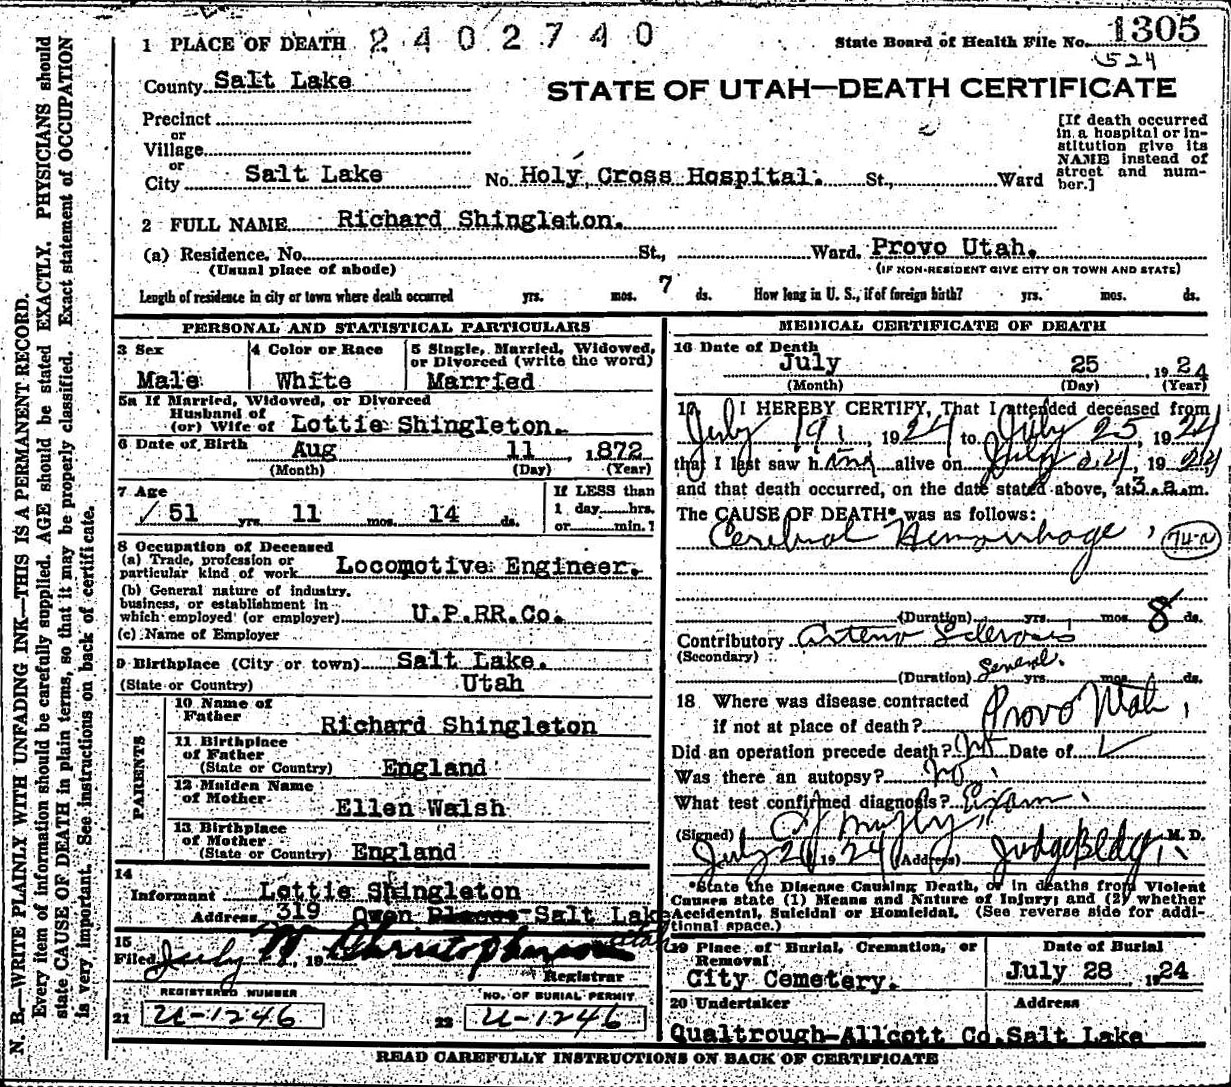 2402740
1 PLACE OF DEATH
State Board of Health File No. 1305
524
County Salt Lake
STATE OF UTAH—DEATH CERTIFICATE
Precinct
or
Village
or
City Salt Lake No. Holy Cross Hospital. St., Ward
[If death occurred
in a hospital or in-
stitution give its
NAME instead of
street and num-
ber.]
2 FULL NAME Richard Shingleton.
(a) Residence. No. St., Ward. Provo Utah.
(Usual place of abode) (IF NON-RESIDENT GIVE CITY OR TOWN AND STATE)
Length of residence in city or town where death occurred yrs. mos. 7 ds. How long in U. S., if of foreign birth? yrs. mos. ds.
PERSONAL AND STATISTICAL PARTICULARS
3 Sex 4 Color or Race 5 Single, Married, Widowed,
or Divorced (write the word)
Male White Married
5a If Married, Widowed, or Divorced
Husband of
(or) Wife of Lottie Shingleton.
6 Date of Birth Aug 11 , 1872
(Month) (Day) (Year)
7 Age If LESS than
51 yrs. 11 mos. 14 ds. 1 day hrs.
or min.?
8 Occupation of Deceased
(a) Trade, profession or
particular kind of work Locomotive Engineer.
(b) General nature of industry,
business, or establishment in
which employed (or employer) U.P.RR.Co.
(c) Name of Employer
9 Birthplace (City or town) Salt Lake.
(State or Country) Utah
PARENTS
10 Name of
Father Richard Shingleton
11 Birthplace
of Father
(State or Country) England
12 Maiden Name
of Mother Ellen Walsh
13 Birthplace
of Mother
(State or Country) England
14
Informant Lottie Shingleton
Address 319 Owen Salt Lake
Utah
15
Filed July , 19 Christopherson
Registrar
REGISTERED NUMBER NO. OF BURIAL PERMIT
21 U-1246 22 U-1246
MEDICAL CERTIFICATE OF DEATH
16 Date of Death
July 25 , 1924
(Month) (Day) (Year)
17 I HEREBY CERTIFY, That I attended deceased from
July 19, 1924 to July 25, 1924
that I last saw him alive on July 24, 1924
and that death occurred, on the date stated above, at 3 a.m.
The CAUSE OF DEATH* was as follows:
Cerebral Hemorrhage, 74-a
(Duration) yrs. mos. 8 ds.
Contributory Arterio Sclerosis
(Secondary) General.
(Duration) yrs. mos. ds.
18 Where was disease contracted
if not at place of death? Provo Utah,
Did an operation precede death? Date of
Was there an autopsy? No.
What test confirmed diagnosis? Exam.
(Signed) M. D.
July 1924 (Address) Judge Bldg.
*State the Disease Causing Death, or in deaths from Violent
Causes state (1) Means and Nature of Injury; and (2) whether
Accidental, Suicidal or Homicidal. (See reverse side for addi-
tional space.)
19 Place of Burial, Cremation, or Date of Burial
Removal
City Cemetery. July 28 , 1924
20 Undertaker Address
Qualtrough-Allcott Co. Salt Lake
READ CAREFULLY INSTRUCTIONS ON BACK OF CERTIFICATE
N. B.—WRITE PLAINLY WITH UNFADING INK—THIS IS A PERMANENT RECORD.
Every item of information should be carefully supplied. AGE should be stated EXACTLY. PHYSICIANS should
state CAUSE OF DEATH in plain terms, so that it may be properly classified. Exact statement of OCCUPATION
is very important. See instructions on back of certificate.